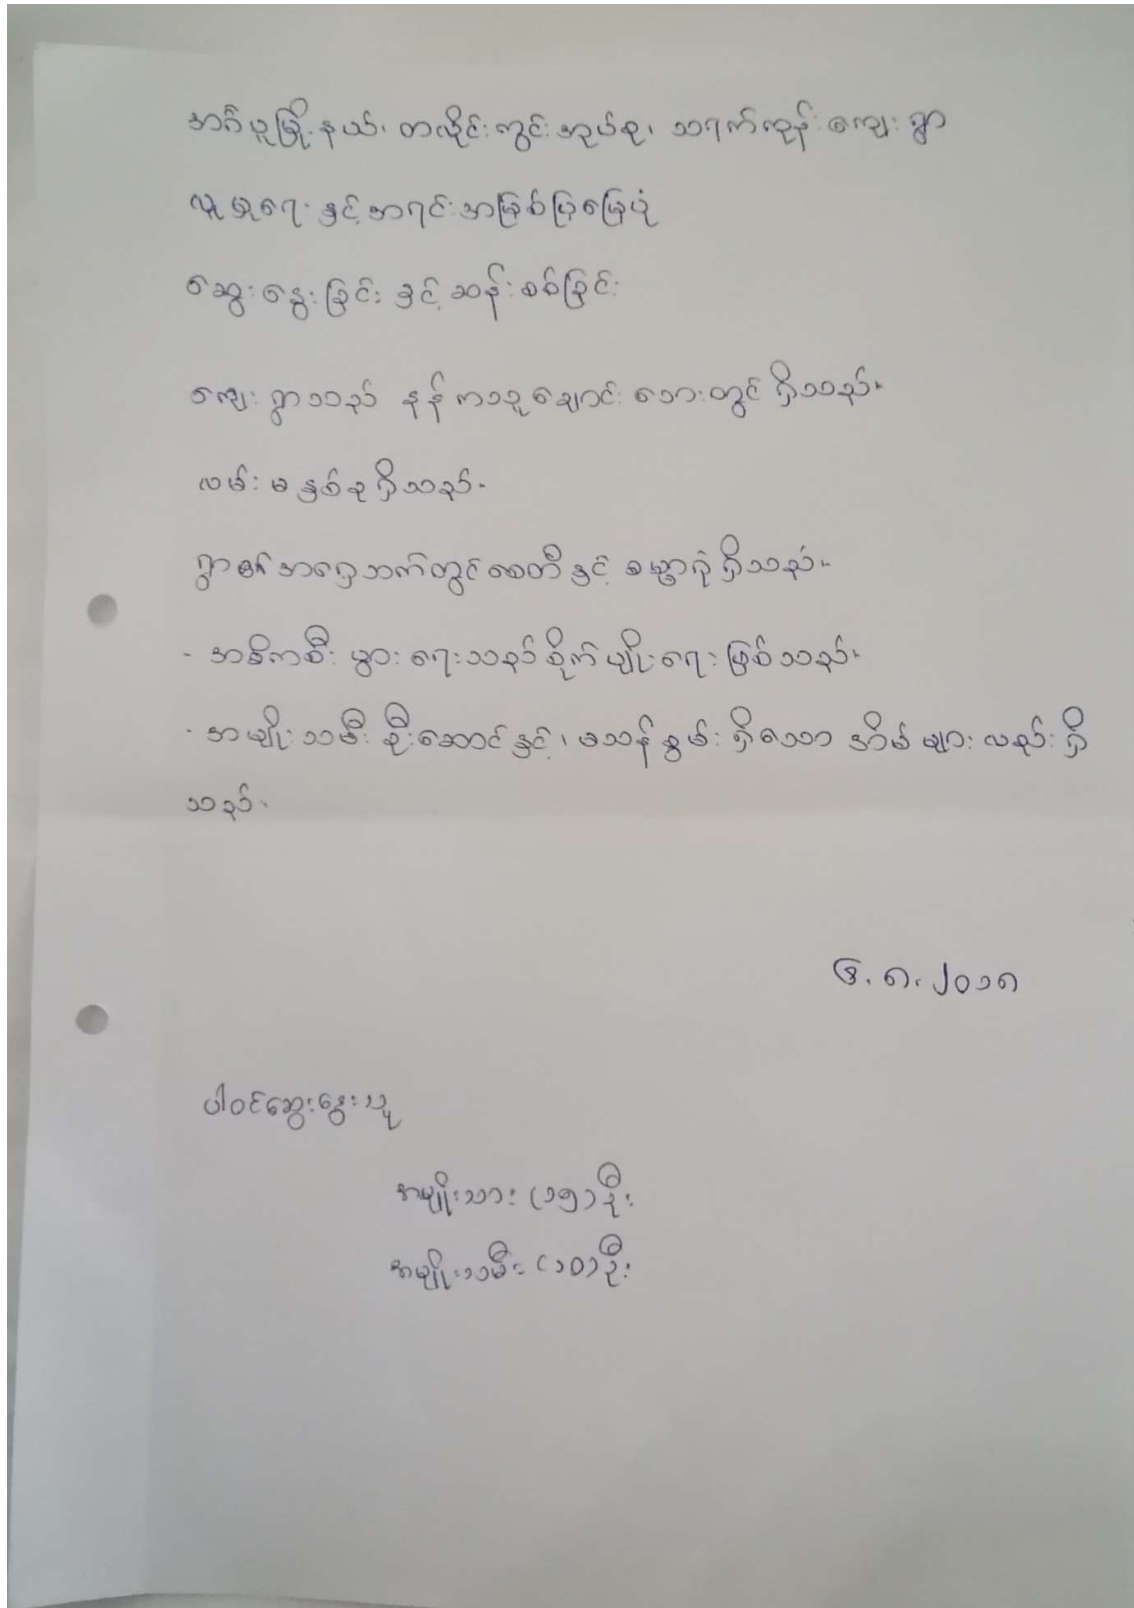 အင်္ဂပူမြို့နယ်၊ တလိုင်းကွင်းအုပ်စု၊ သရက်ကုန်းကျေးရွာ
လူမှုရေးနှင့်အရင်းအမြစ်ပြမြေပုံ
ဆွေးနွေးခြင်းနှင့်ဆန်းစစ်ခြင်း
ကျေးရွာသည် နန်ကသူချောင်းဘေးတွင်ရှိသည်။
လမ်းမနှစ်ခုရှိသည်။
ရွာ၏အရှေ့ဘက်တွင်စေတီနှင့် ဓမ္မာရုံရှိသည်။
- အဓိကစီးပွားရေးသည်စိုက်ပျိုးရေးဖြစ်သည်။
- အမျိုးသမီးဦးဆောင်နှင့်၊ မသန်စွမ်းရှိသောအိမ်များလည်းရှိ
သည်။
၆.၈.၂၀၁၈
ပါဝင်ဆွေးနွေးသူ
အမျိုးသား (၁၅) ဦး
အမျိုးသမီး (၁၀) ဦး